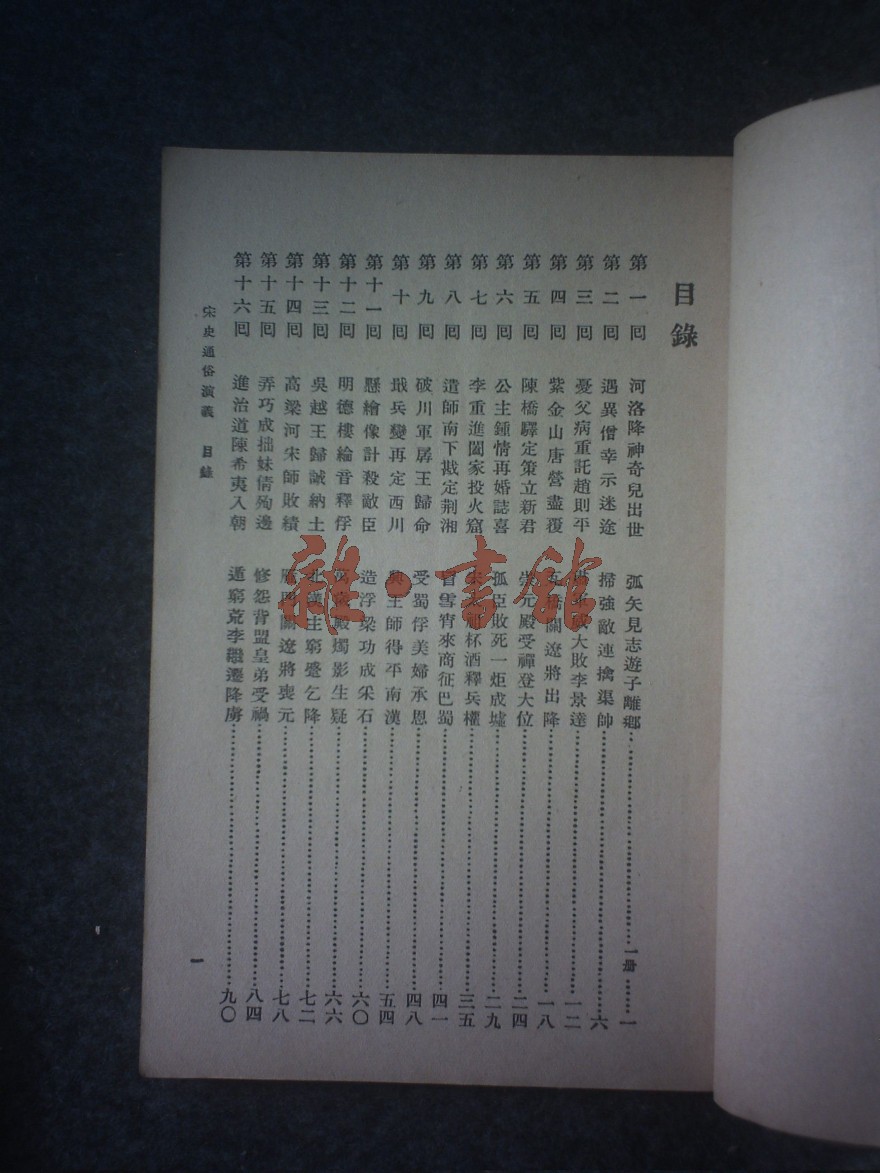 目錄
第一回 河洛降神奇兒出世 弧矢見志遊子離鄉 一册 一
第二回 遇異僧幸示迷途 掃強敵連擒渠帥 六
第三回 憂父病重託趙則平 大敗李景達 一二
第四回 紫金山唐營盡覆 瓦橋關遼將出降 一八
第五回 陳橋驛定策立新君 崇元殿受禪登大位 二四
第六回 公主鍾情再婚誌喜 孤臣敗死一炬成墟 二九
第七回 李重進闔家投火窟 宋太祖杯酒釋兵權 三五
第八回 遣師南下戡定荆湘 冒雪宵來商征巴蜀 四一
第九回 破川軍孱王歸命 受蜀俘美婦承恩 四八
第十回 戢兵變再定西川 興王師得平南漢 五四
第十一回 懸繪像計殺敵臣 造浮梁功成采石 六〇
第十二回 明德樓綸音釋俘 萬歲殿燭影生疑 六六
第十三回 吳越王歸誠納土 北漢主窮蹙乞降 七二
第十四回 高梁河宋師敗績 雁門關遼將喪元 七八
第十五回 弄巧成拙妹倩殉邊 修怨背盟皇弟受禍 八四
第十六回 進治道陳希夷入朝 遁窮荒李繼遷降虜 九〇
宋史通俗演義 目錄
一
雜·書館